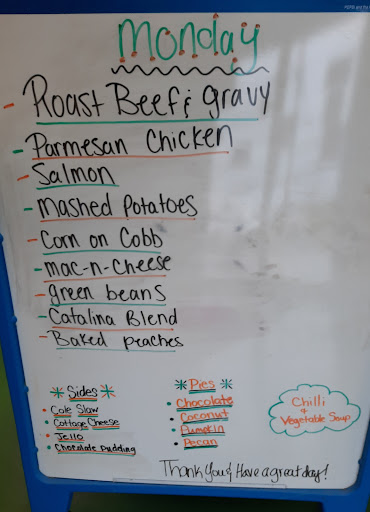 Monday
- Roast Beef & gravy
- Parmesan Chicken
- Salmon
- Mashed Potatoes
- Corn on Cobb
- mac-n-cheese
- green beans
- Catalina Blend
- Baked peaches
* Sides *
• Cole Slaw
• Cottage Cheese
• Jello
• Chocolate Pudding
* Pies *
• Chocolate
• Coconut
• Pumpkin
• Pecan
Chilli
&
Vegetable Soup
Thank You & Have a great day!